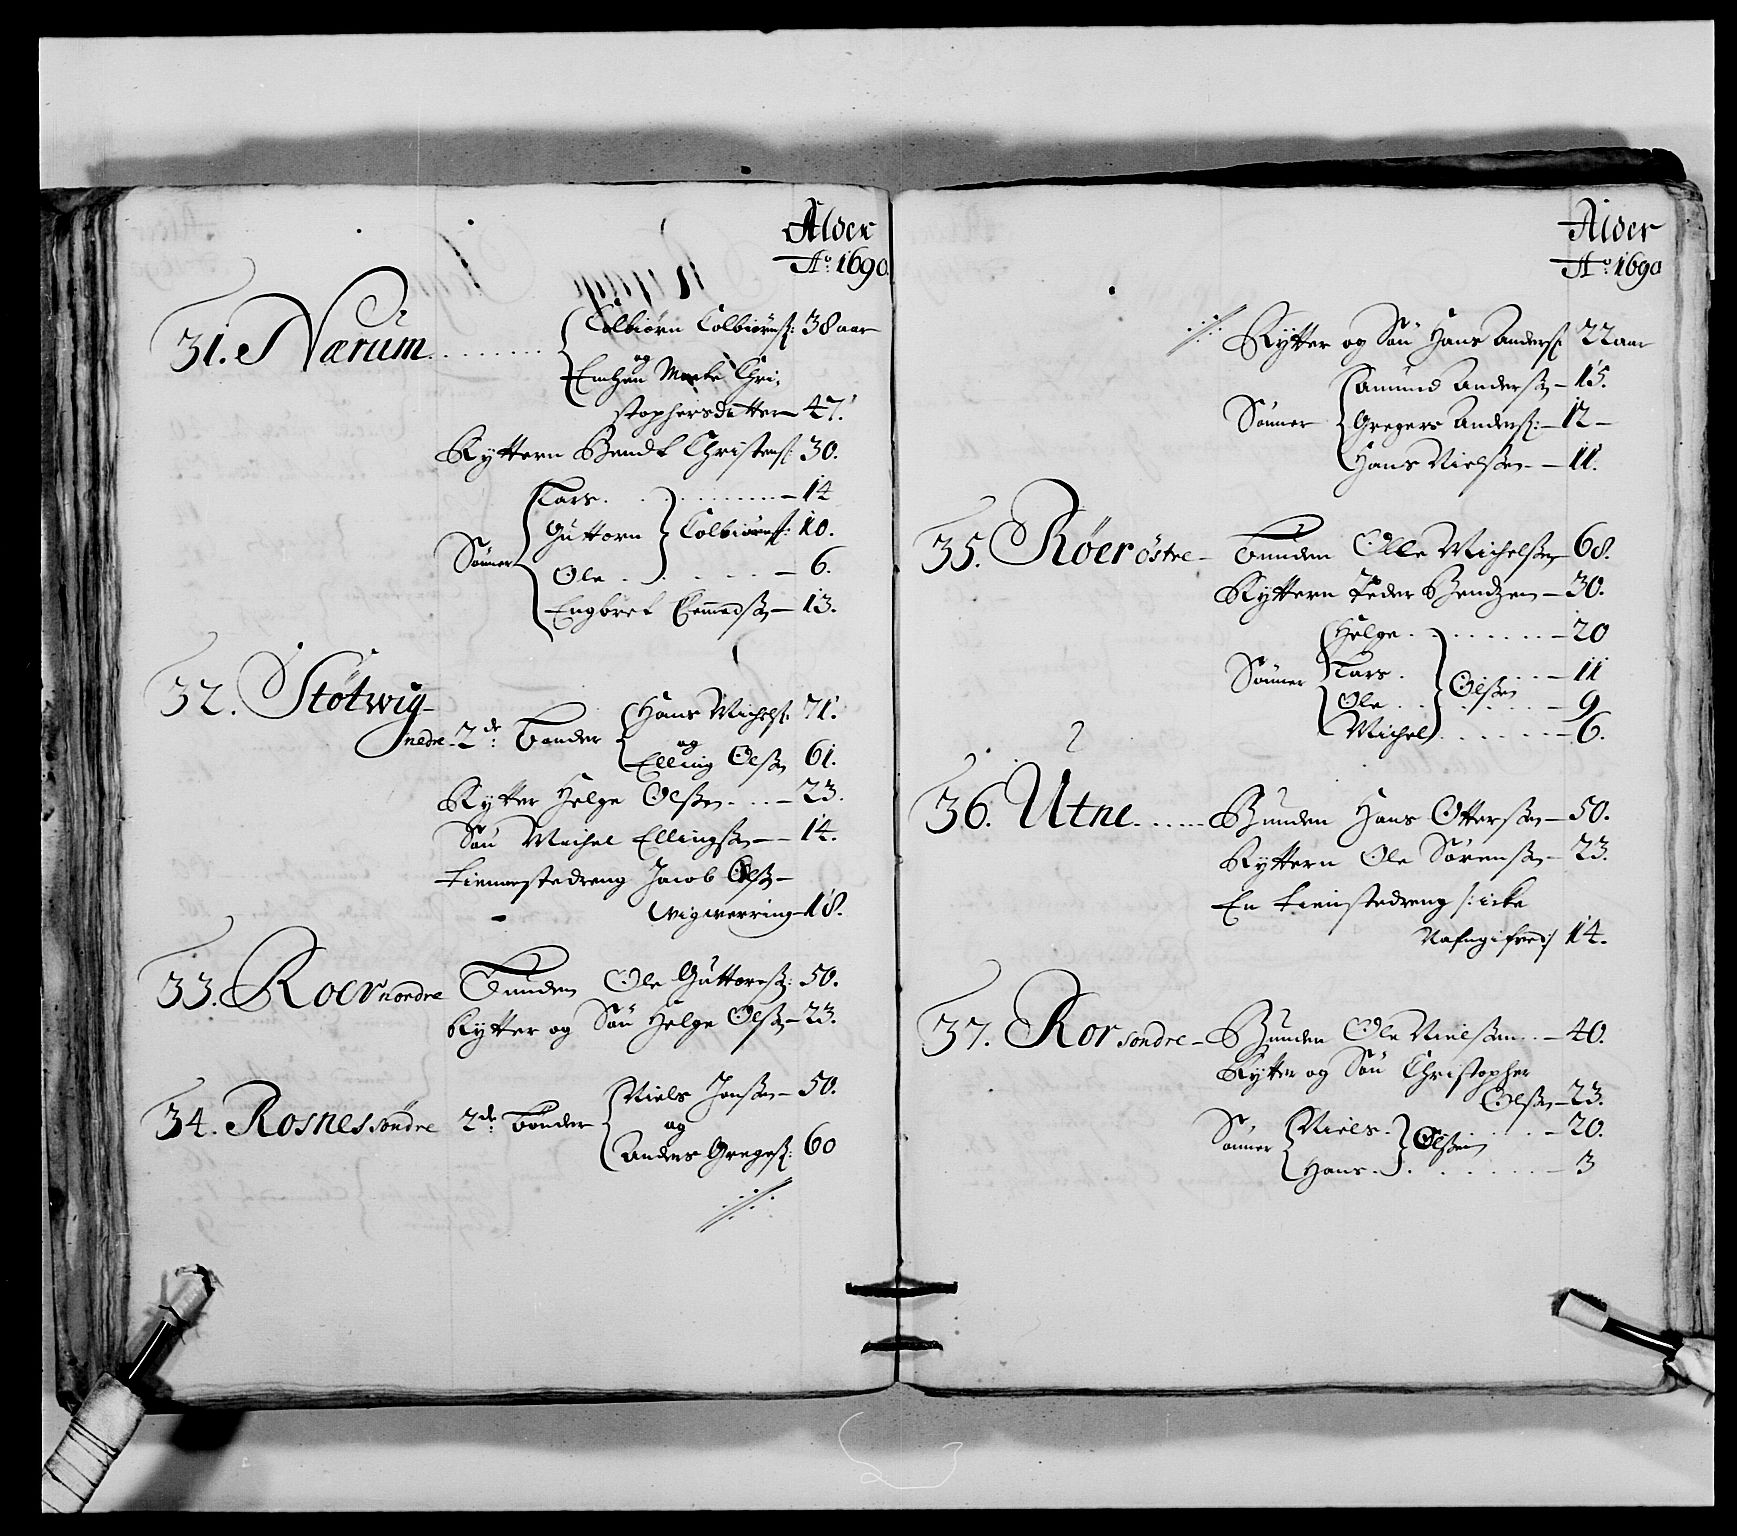 Alder
Aº: 1690
31. Nærum
Colbiørn Colbiørnß: 38 aar
og
Enchen Marte Chri-
stophersdatter 47.
Ryttern Bendt Christenß: 30.
Sønner
Lars 14
Guttorn 10.
Colbiørnß:
Ole 6.
Engbret Ammedßen 13.
32. Støtwig
nedre 2de: bønder
Hans Michelß: 71.
og
Elling Olßen 61.
Rytter Helge Olßen 23.
Søn Michel Ellingßen 14.
Tienestedreng Jacob Olß
Wigwerring 18.
33. Roer nordre Bunden Ole Guttormß: 50.
Rytter og Søn Helge Olßen 23.
34. Rosnes søndre 2de: bønder
Niels Jonßen 50.
og
Anders Gregerß: 60
./.
Alder
Aº: 1690
./. Rytter og Søn Hans Anderß: 22 aar
Sønner
Amund Anderßen 15.
Gregers Anderß: 12
Hans Nielßen 11.
35. Røer østre Bunden Olle Michelßen 68.
Ryttern Peder Bendzen 30.
Sønner
Helge 20
Lars 11
Olßen
Ole 9
Michel 6.
36. Utne Bunden Hans Otterßen 50.
Ryttern Ole Sørenßen 23.
En tienistedreng /: icke
Nafngifven :/ 14.
37. Ror søndre Bunden Ole Nielßen 40.
Rytter og Søn Christopher
Olßen 23.
Sønner
Niels 20.
Olßen
Hans 3